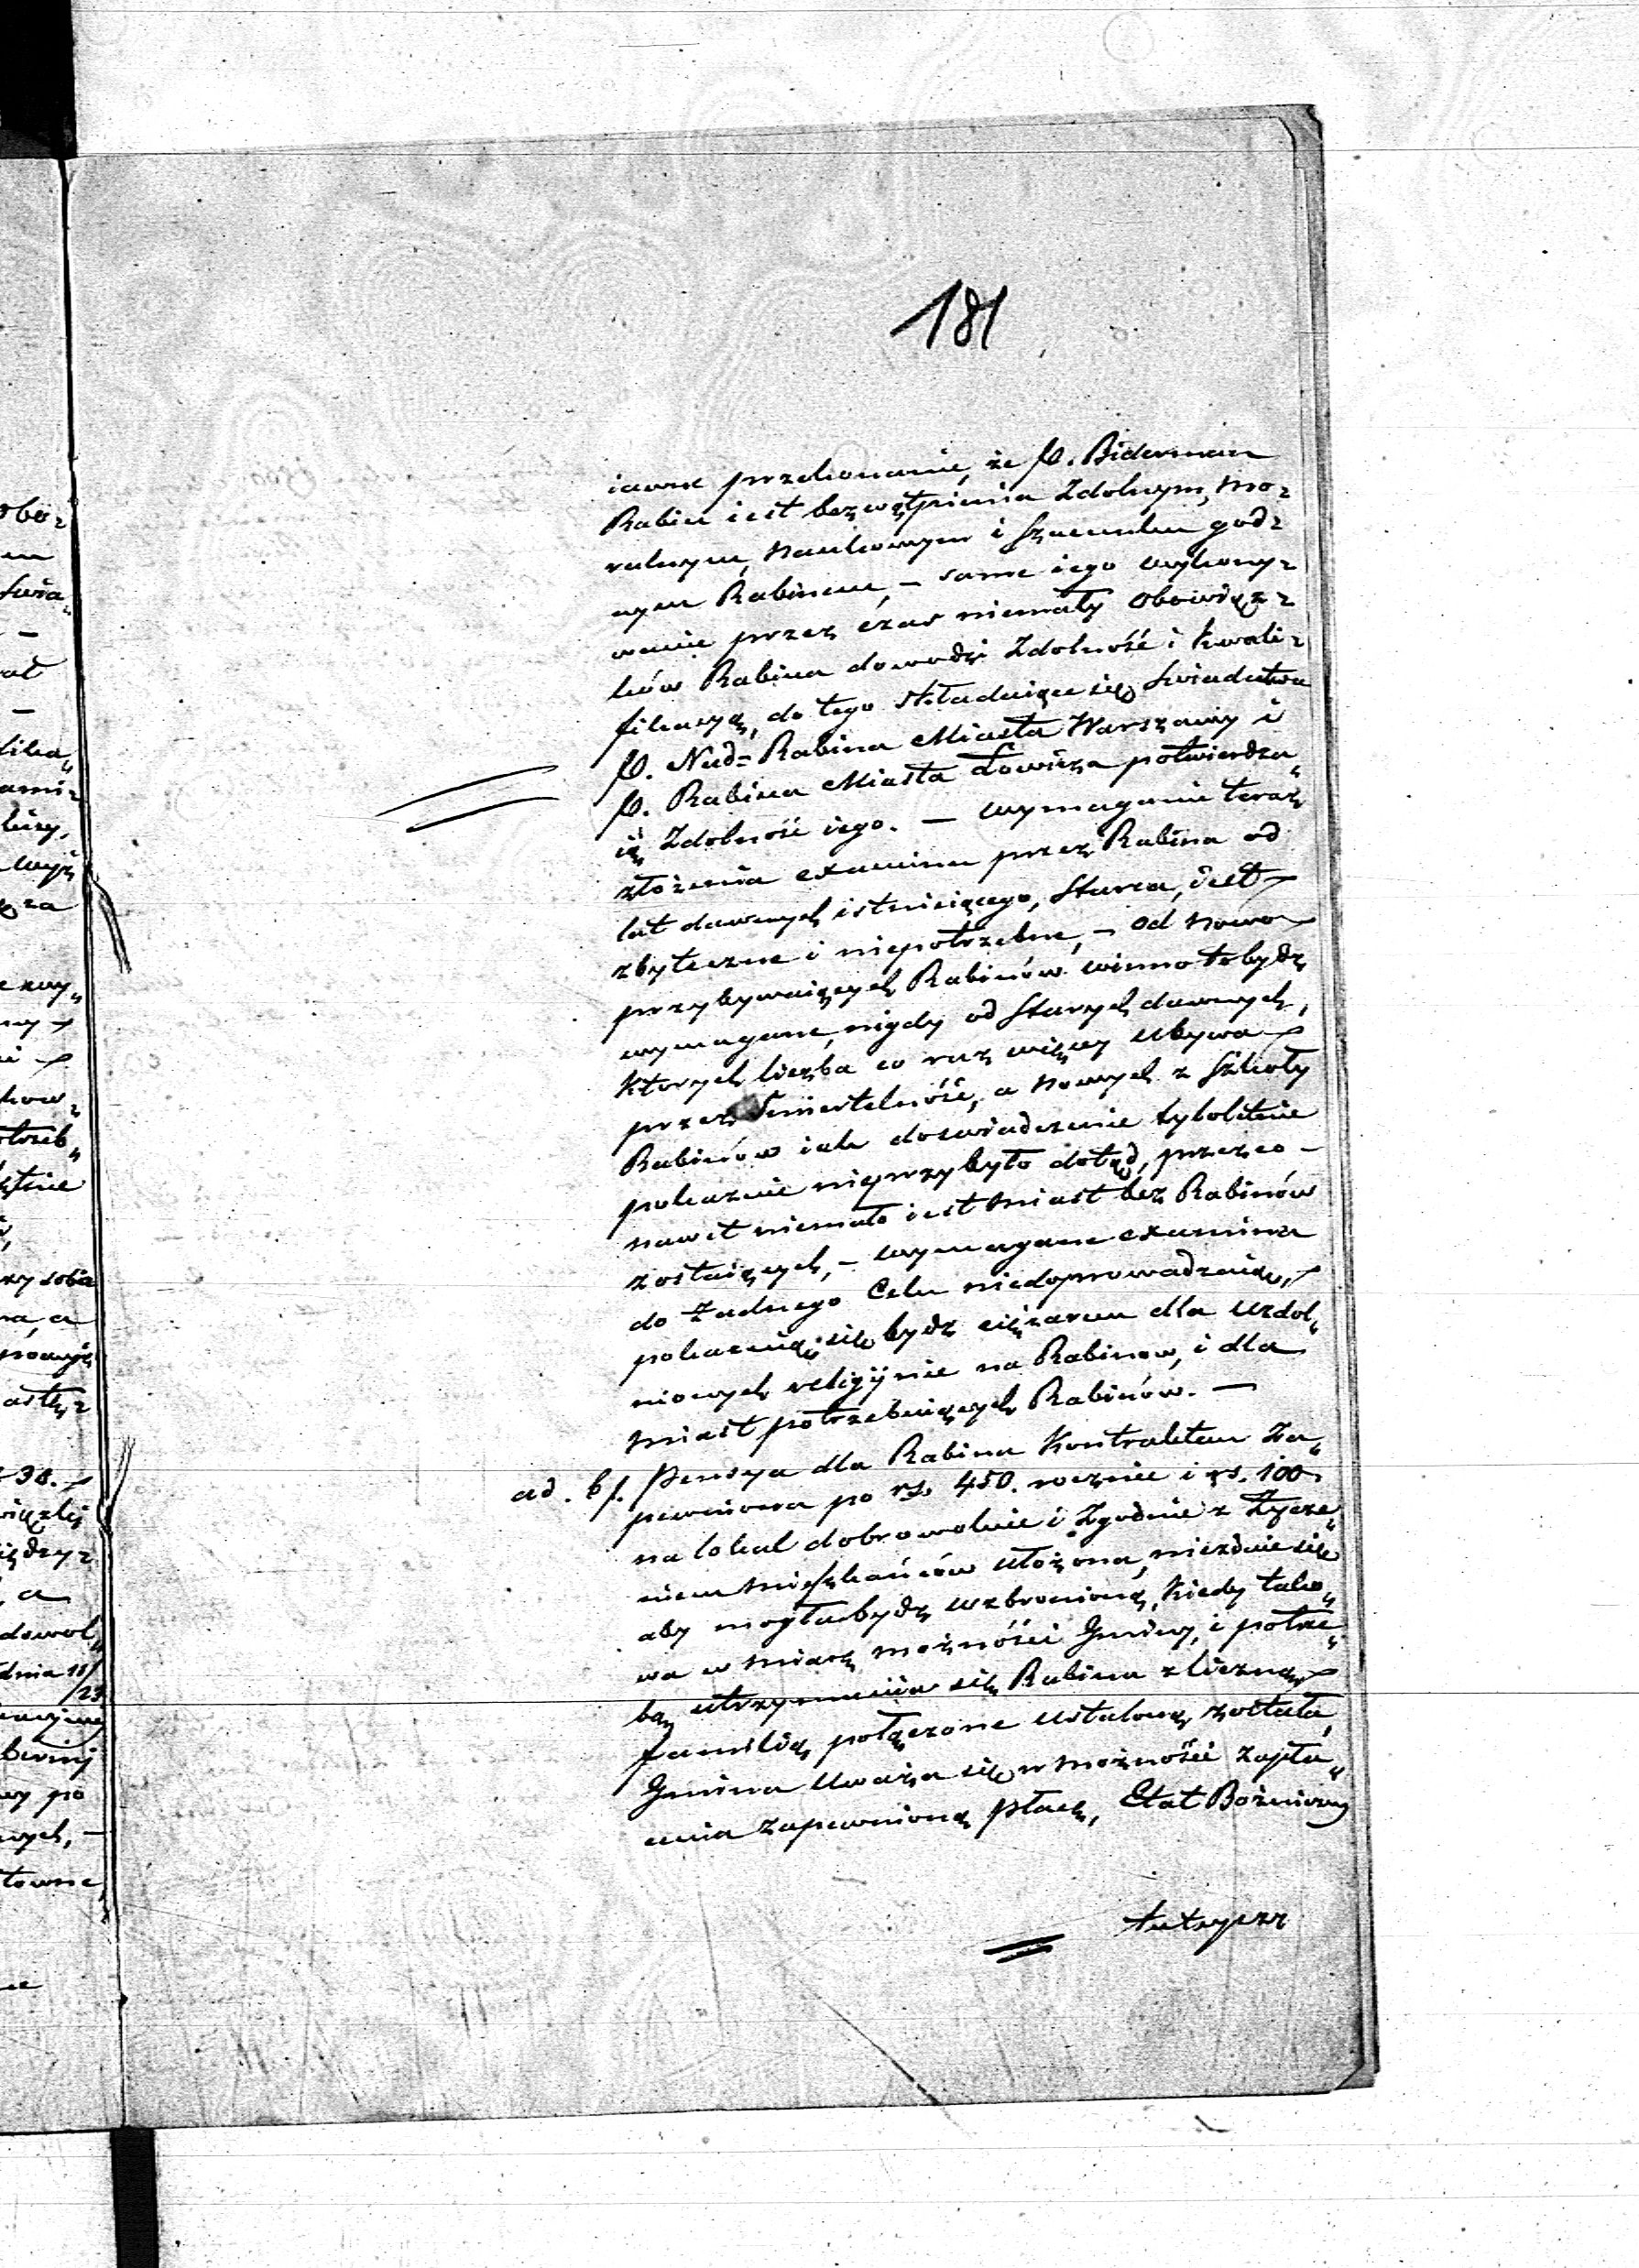 181
iawne przekonanie, że P. Biderman
Rabin iest bezwątpienia Zdolnym, mo=
ralnym, naukowym i szacunku god=
nym Rabinem, – same iego wykony=
wanie przez czas niemały obowiąz=
ków Rabina dowodzi Zdolność i kwali=
fikacyą, do tego składaiące się świadectwa
P. Nad=Rabina Miasta Warszawy i
P. Rabina Miasta Łowicza potwierdza„
ią Zdolność iego. – wymaganie teraz
złożenia examinu przez Rabina od
lat dawnych istnieiącego, starca, iest
zbyteczne i niepotrzebne, – od nowo
przybywaiących Rabinów winno to bydź
wymagane, nigdy od starych dawnych,
których liczba co raz więcy ubywa
przez Śmiertelność, a nowych z Szkoły
Rabinów iak doświadczenie tyloletnie
pokazuie nieprzybyło dotąd, przezco –
nawet niemało iest miast bez Rabinów
zostaiących, – wymagane examina
do żadnego Celu niedoprowadzaią,
pokazuią się bydź ciężarem dla uzdol„
nionych religijnie na Rabinow, i dla
miast potrzebuiących Rabinów. –
ad. b/. Pensya dla Rabina Kontraktem Za„
pewniona po rs. 450. rocznie i rs. 100
na lokal dobrowolnie i Zgodnie z Życze„
niem mieszkańców ułożona, niezdaie się
aby mogła bydź wzbronioną, kiedy tako„
wa w miarę możności Gminy, i potrze„
by utrzymania się Rabina z liczną
familią połączone ustaloną została,
Gmina uważa się w możności zapła„
cenia zapewnioną płacę, Etat Bożniczny
tutejszy
obo=
świa„
lika„
ami=
wyż
za
trzeb„
zy sobie
na, a
38.
iędzy=
a
dowol„
dnia 11/
23
wy po
wych, –